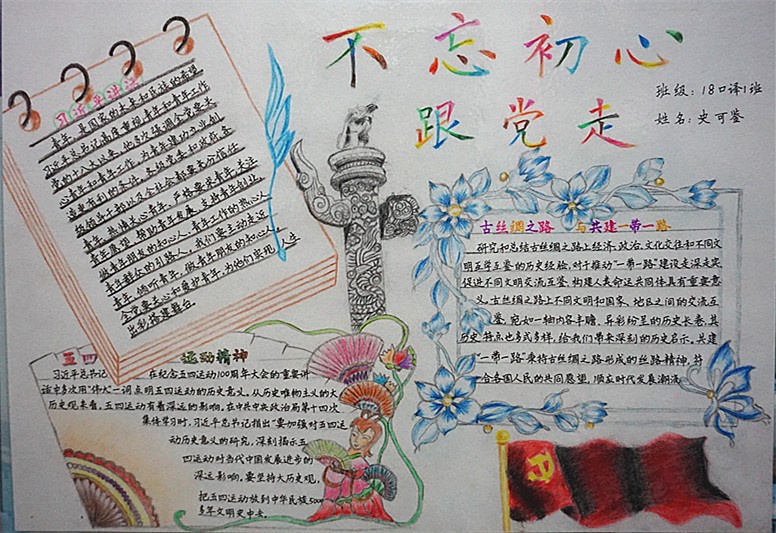 不忘初心
跟党走
班级：18口译1班
姓名：史可鉴
习近平讲话
青年，是国家的未来和民族的希望
习近平总书记高度重视青年和青年工作
党的十八大以来，他多次强调全党要关
心青年和青年工作，为青年建功立业创
造更有利的条件，各级党委和政府、各
级领导干部以及全社会都要充分信任
青年，热情关心青年，严格要求青年，关注
青年愿望，帮助青年发展，支持青年创业，
做青年朋友的知心人，青年工作的热心人，
青年群众的引路人，我们要主动走近
青年，倾听青年，做青年朋友的知心人。
全党要关心和爱护青年，为他们实现人生
出彩搭建舞台。
古丝绸之路 与共建一带一路
研究和总结古丝绸之路上经济、政治、文化交往和不同文
明互学互鉴的历史经验，对于推动“一带一路”建设走深走实
促进不同文明交流互鉴，构建人类命运共同体具有重要意
义。古丝绸之路上不同文明和国家、地区之间的交流互
鉴，宛如一轴内容丰赡、异彩纷呈的历史长卷，其
历史特点也多式多样，给我们带来深刻的历史启示。共建
“一带一路”秉持古丝绸之路形成的丝路精神，符
合各国人民的共同愿望，顺应时代发展潮流
五四 运动精神
习近平总书记 在纪念五四运动100周年大会的重要讲
话中多次用“伟大”一词点明五四运动的历史意义。从历史唯物主义的大
历史观来看，五四运动有着深远的影响。在中共中央政治局第十四次
集体学习时，习近平总书记指出“要加强对五四运
动历史意义的研究，深刻揭示五
四运动对当代中国发展进步的
深远影响。要坚持大历史观，
把五四运动放到中华民族5000
多年文明史中去。